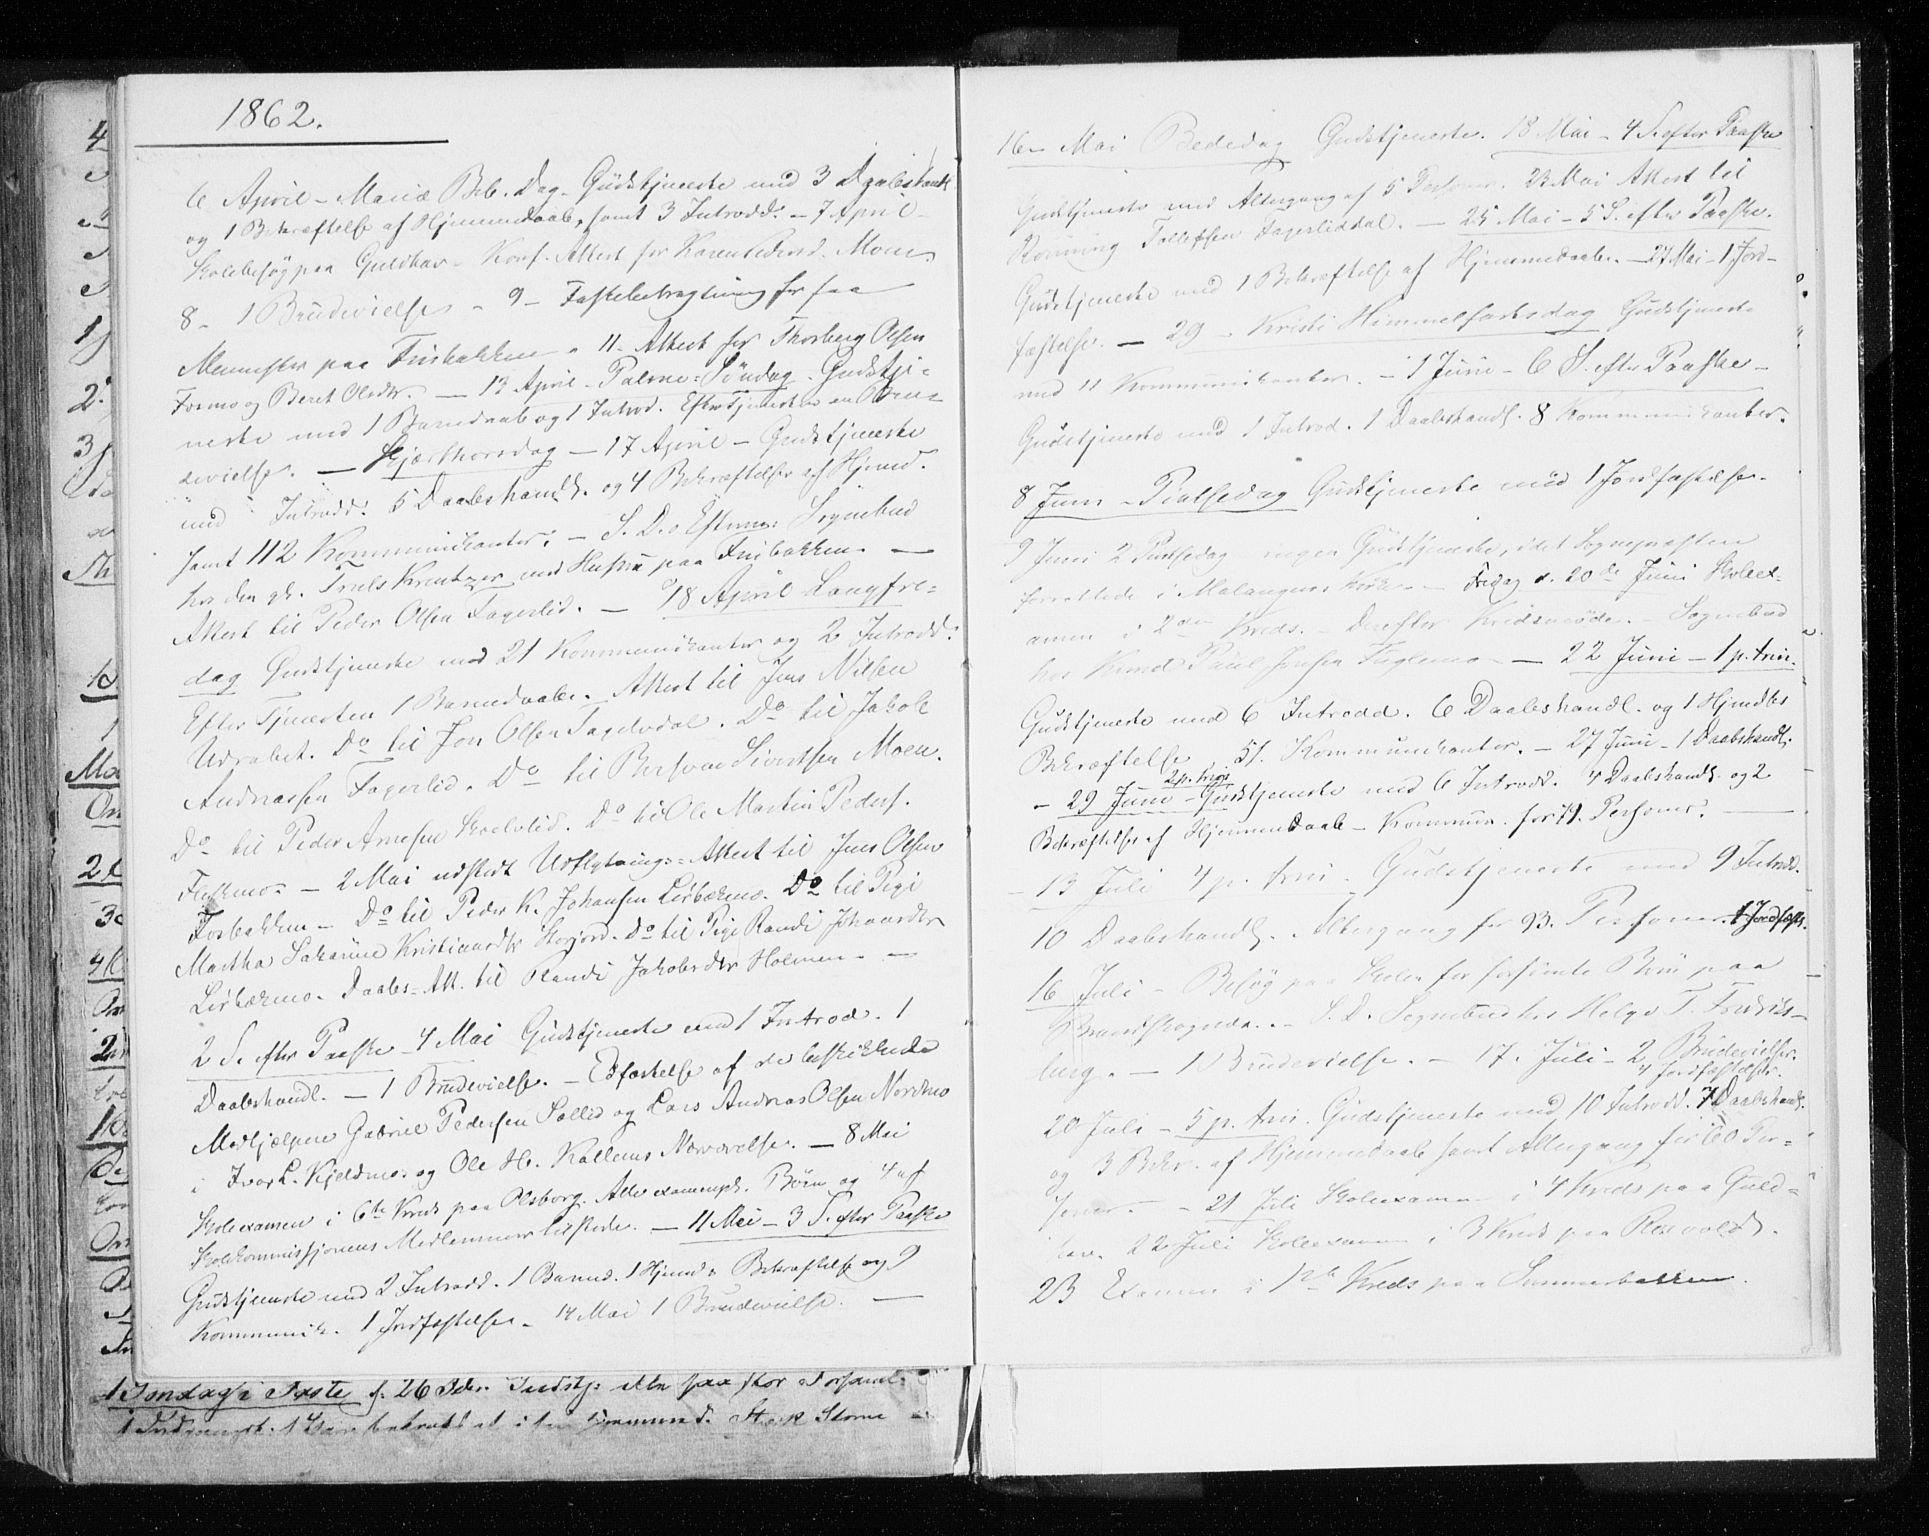 1862.
6 April – Mariæ Beb. Dag – Gudstjeneste med 3 Daabshandl.
og 1 Bekræftelse af Hjemmedaab, samt 3 Introdd: – 7 April –
Skolebesøg paa Guldhav – Konf. Attest for Karen Pedersd. Moen.
8 – 1 Brudevielse – 9 – Fastebetragtning for faa
Mennesker paa Finbakken – 11 – Attest for Thorberg Olsen
Formo og Beret Olsdtr. — 13 April – Palme-Søndag – Gudstje-
neste med 1 Barnedaab og 1 Introd. Eftertjenesten en Bru-
devielse. — Skjærthorsdag – 17 April – Gudstjeneste
med Introdd. 5 Daabshandl. og 4 Bekræftelser af Hjemd.
samt 112 Kommunikanter. – S. D. Efterm: Sognebud
hos den gl. Truls Kreutzer med Hustru paa Finbakken. —
Attest til Peder Olsen Fagerlid. — 18 April Langfre-
dag Gudstjeneste med 21 Kommunikanter og 2 Introdd:
Efter Tjenesten 1 Barnedaab. Attest til Jens Nilsen
Udrabet. Do til Jon Olsen Fagerlidal. Do til Jakob
Andreassen Fagerlid. Do til Bersvен Sivertsen Moen.
Do til Peder Arnesen Skoelvlid. Do til Ole Martin Peders.
Fleskmo – 2 Mai udstedt Udflytnings-Attest til Jens Olsen
Fosbakken – Do til Peder K. Johansen Lørbækmo. Do til Pige
Martha Zakarine Kristiansdtr Storjord. do til Pige Randi Johansdtr
Lørbækmo. Daabs-Att. til Randi Jakobsdtr Holmen – —
2 S. efter Paaske – 4 Mai Gudstjeneste med 1 Introd. 1
Daabshandl. — 1 Brudevielse. – Edfæstelse af de beskikkede
Medhjælpere Gabriel Pedersen Sollid og Lars Andreas Olsen Nordmo
i Ivar L. Kjeldmo og Ole H. Kallems Nærværelse. — 8 Mai
Skoleexamen i 6te Kreds paa Olsborg. Alle Børn og 4 af
Skolekommissjonens Medlemmer tilstede. — 11 Mai – 3 S. efter Paaske
Gudstjeneste med 2 Introdd. 1 Barned. 1 Hjemd: Bekræftelse og 9
Kommunik. 1 Jordfæstelse – 14 Mai 1 Brudevielse. —
16 – Mai Bededag Gudstjeneste. 18 Mai – 4 S. efter Paaske
Gudstjeneste med Altergang af 5 Personer. 23 Mai Attest til
Rønning Tollefsen Fagerliddal. – 25 Mai – 5 S. efter Paaske.
Gudstjeneste med 1 Bekræftelse af Hjemmedaab. – 27 Mai – 1 Jord-
fæstelse. — 29 – Kristi Himmelfartsdag Gudstjeneste
med 11 Kommunikanter. – 1 Juni – 6 S. efter Paaske –
Gudstjeneste med 1 Introd. 1 Daabshandl. 8 Kommunikanter.
8 Juni – Pintsedag Gudstjeneste med 1 Jordfæstelse.
9 Juni 2 Pintsedag ingen Gudstjeneste, idet Sognepræsten
forrettede i Malangens Kirke – Fredag d. 20de Juni Skoleex-
amen i 2den Kreds. – Derefter Kredsmøde. – Sognebud
hos Paul Jonsen Fuglemo – — 22 Juni – 1 p. trin.
Gudstjeneste med 6 Introdd. 6 Daabshandl. og 1 Hjmdbs
Bekræftelse 51 Kommunikanter. – 27 Juni – 1 Daabshandl.
2 p. trin
– 29 Juni – Gudstjeneste med 6 Introdd. 4 Daabshandl. og 2
Bekræftelser af Hjemmedaab – Kommun. for 71. Personer. —
– 13 Juli 4 p. trin. Gudstjeneste med 9 Introdd.
10 Daabshandl. Altergang for 93. Personer. 1 Jordfæst.
16 Juli – Besøg paa Skolen for forsømte Børn paa
Brandskognes. – S. D. Sognebud hos Helge T. Fredriks-
berg. – 1 Brudevielse. – 17. Juli – 2 Brudevielser.
4 Jordfæstelser.
20 Juli – 5 p. trin. Gudstjeneste med 10 Introdd. 7 Daabshandl.
og 3 Bekr. af Hjemmedaab samt Altergang for 60 Per-
soner. – 21 Juli Skoleexamen i 4 Kreds paa Guld-
hav. 22 Juli Skoleexamen i 3 Kreds paa Roxvold.
23 Examen i 1ste Kreds paa Sommerbakken.
1 Søndag i Faste d: 26 Febr. Gudstj: